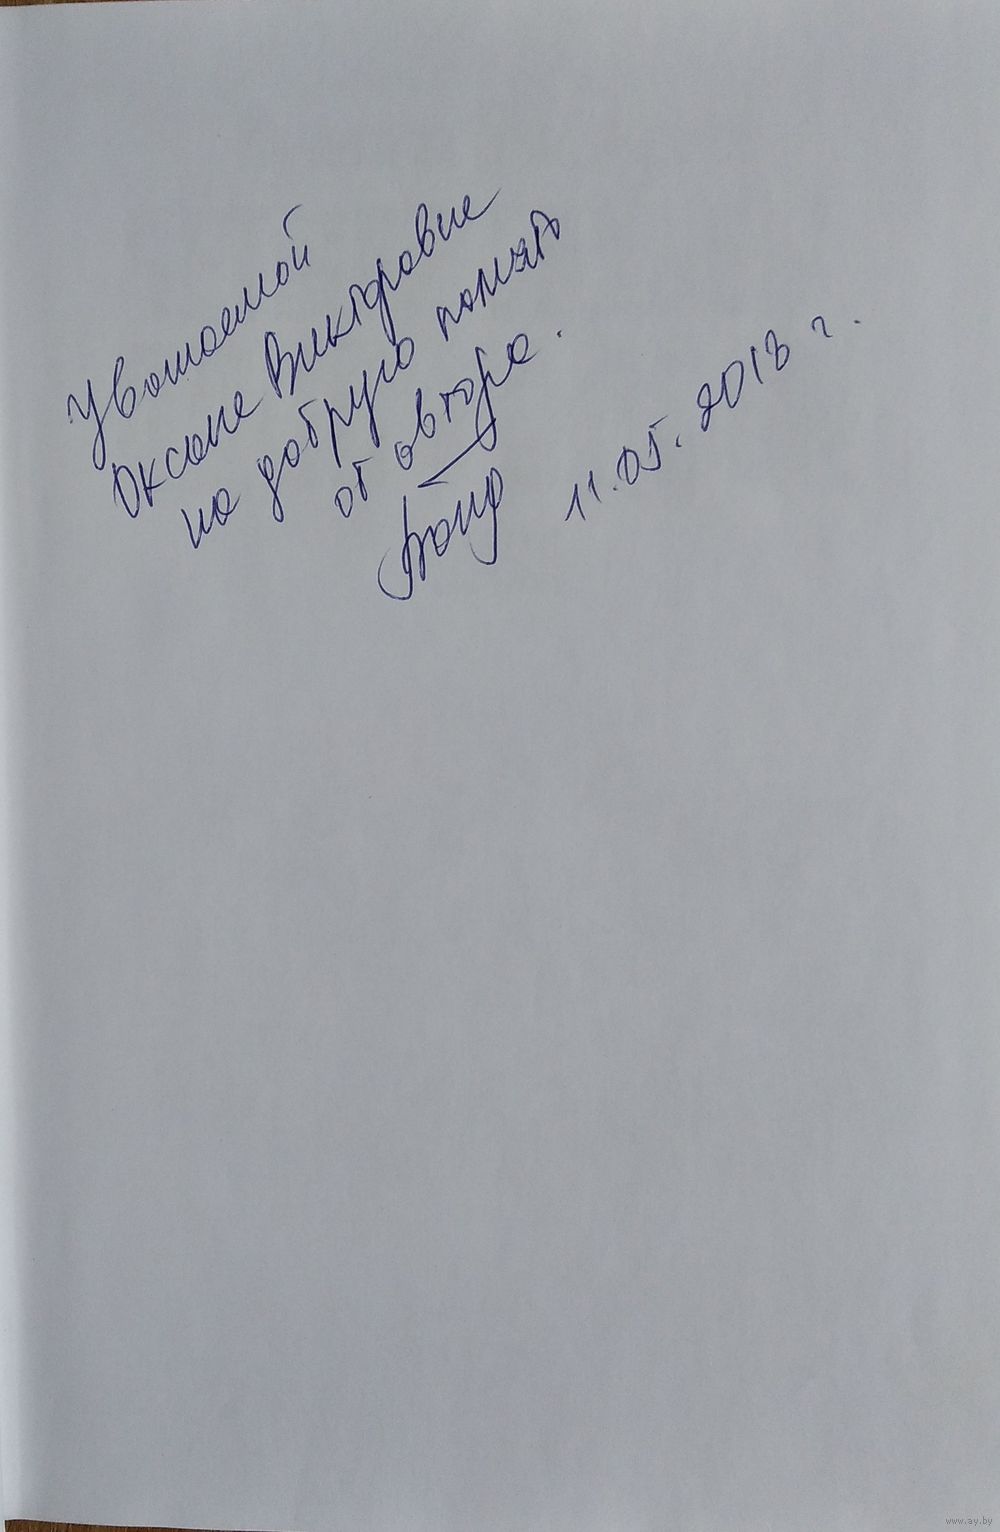 Уважаемой
Оксане Викторовне
на добрую память
от автора.
11.05.2018 г.
www.ay.by